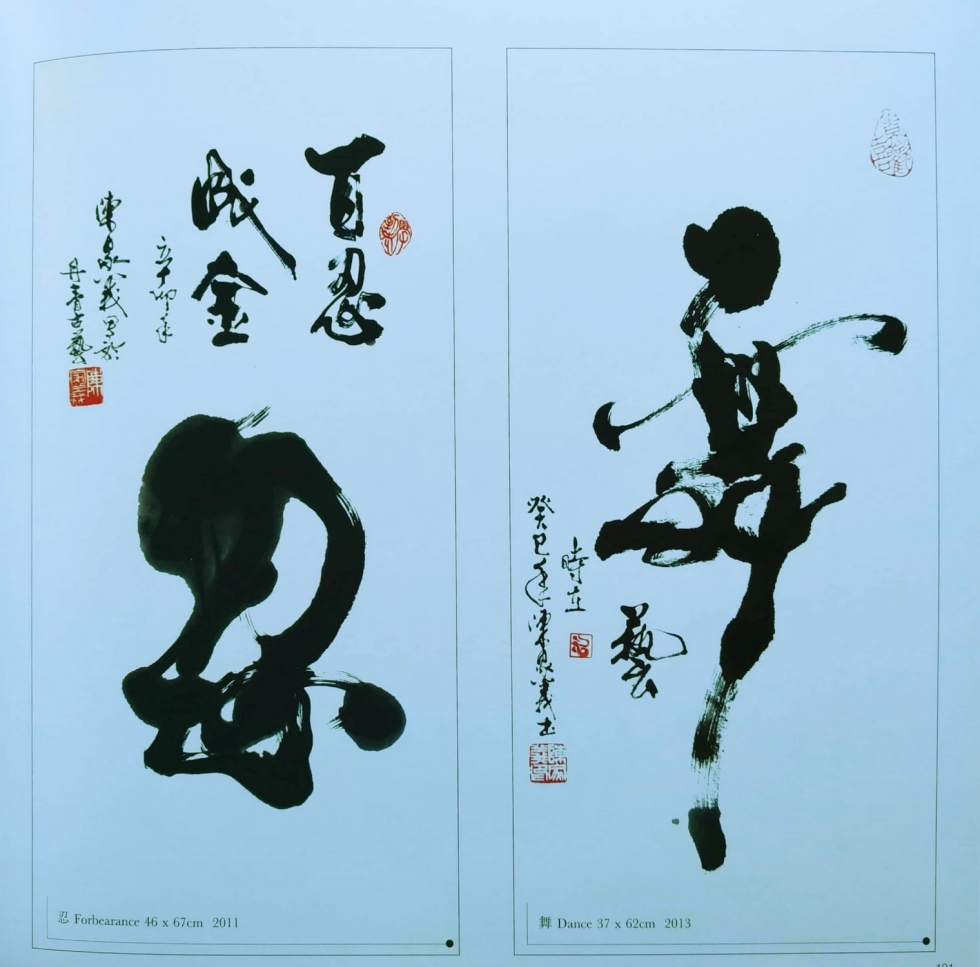 百忍
成金
辛卯年
陳家義書於
丹青古藝
忍
忍 Forbearance 46 x 67cm 2011
舞
藝
時在
癸巳年陳家義書
舞 Dance 37 x 62cm 2013